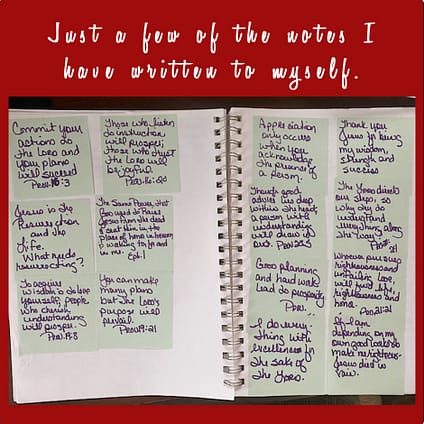 Just a few of the notes I
have written to myself.
Commit your
actions to
the Lord and
your plans
will succeed
Prov. 16:3
Those who listen
to instruction
will prosper;
those who trust
the Lord will
be joyful.
Prov. 16:20
Jesus is the
Resurrection
and the
Life.
What needs
resurrecting?
The Same Power that
God used to Raise
Jesus from the dead
& seat him in the
place of honor in heaven
is working in me and
Eph. 1
To acquire
wisdom is to love
yourself; people
who cherish
understanding
will prosper.
Prov. 19:8
You can make
many plans
but the Lord's
purpose will
prevail.
Prov. 19:21
Appreciation
only occurs
when you
acknowledge
the presence of
a person.
Though good
advice lies deep
within the heart
a person with
understanding
will draw it
out. Prov.
Good planning
and hard work
lead to prosperity
Prov.
I do every-
thing with
excellence for
the sake of
the Lord.
Thank you
Jesus for being
my wisdom,
strength and
success
The Lord directs
our steps, so
why try to
understand
everything along
the way?
Whoever pursues
righteousness and
unfailing love
will find life,
righteousness and
honor.
Prov 21:21
If I am
depending on my
own good works to
make me righteous
Jesus died in
vain.